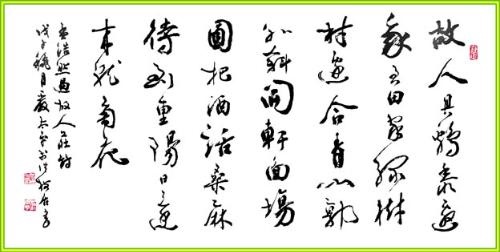 故人具鷄黍邀
我至田家綠樹
村邊合青山郭
外斜開軒面場
圃把酒話桑麻
待到重陽日還
来就菊花
孟浩然過故人莊詩
戊子穐月